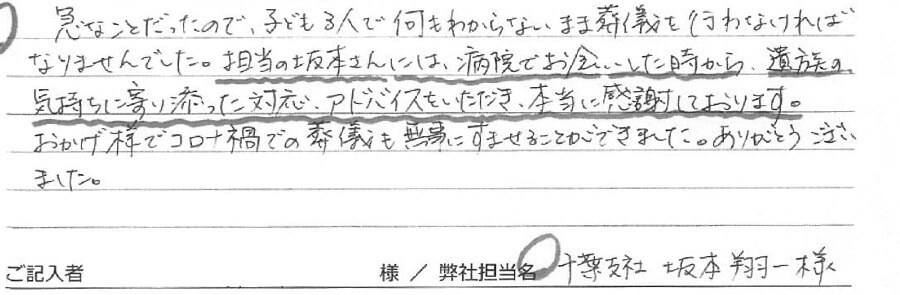 急なことだったので、子ども3人で何もわからないまま葬儀を行わなければ
なりませんでした。担当の坂本さんには、病院でお会いした時から、遺族の
気持ちに寄り添った対応、アドバイスをいただき、本当に感謝しております。
おかげ様でコロナ禍での葬儀も無事にすませることができました。ありがとうござい
ました。
ご記入者 様 / 弊社担当名 千葉支社 坂本翔一様